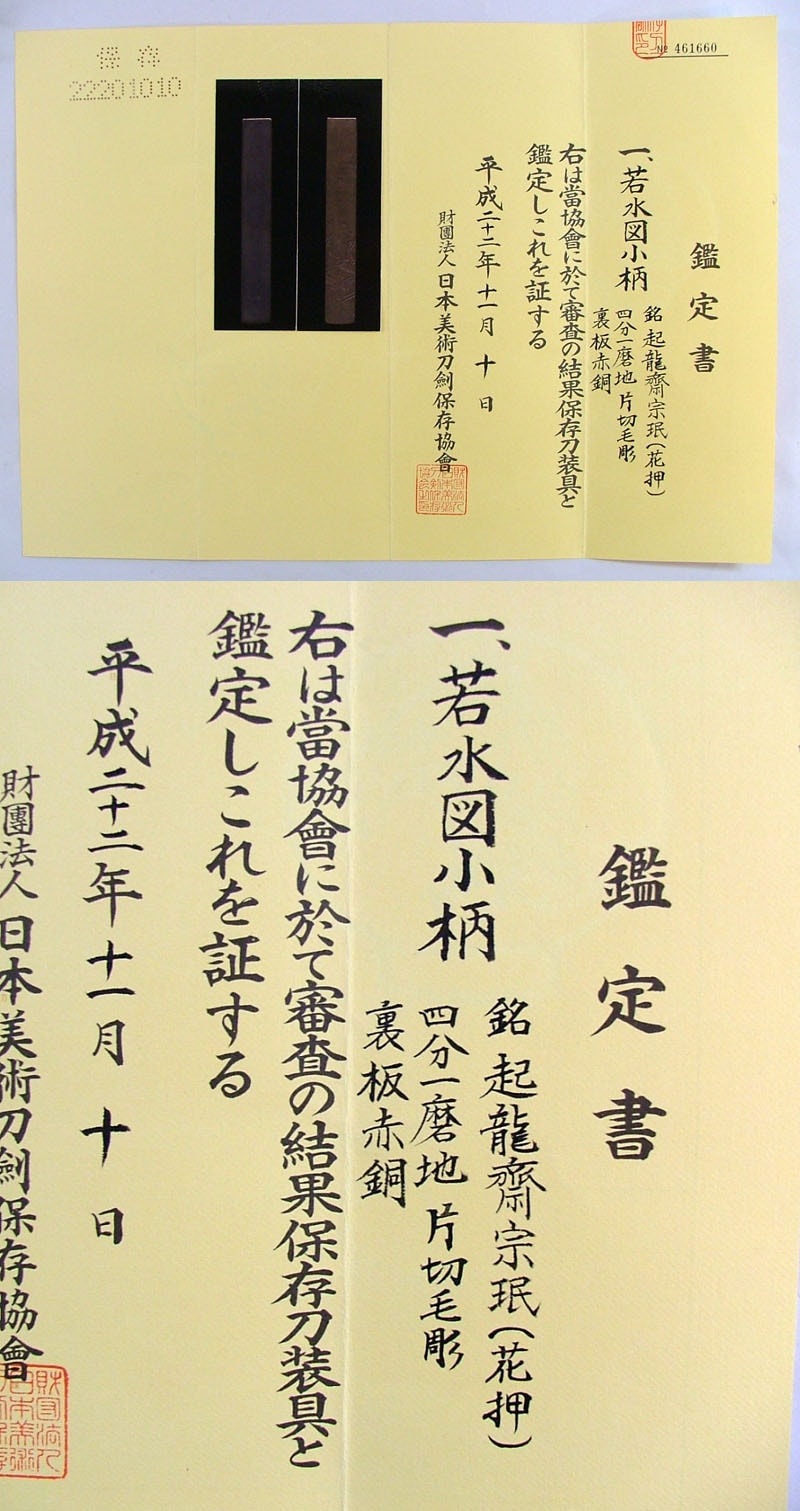 № 461660
鑑定書
一、若水図小柄
銘 起龍齋宗珉(花押)
四分一磨地 片切毛彫
裏板赤銅
右は當協會に於て審査の結果保存刀装具と
鑑定しこれを証する
平成二十二年十一月 十 日
財團法人日本美術刀劍保存協會
保存
22201010
鑑定書
一、若水図小柄
銘 起龍齋宗珉(花押)
四分一磨地 片切毛彫
裏板赤銅
右は當協會に於て審査の結果保存刀装具と
鑑定しこれを証する
平成二十二年十一月 十 日
財團法人日本美術刀劍保存協會